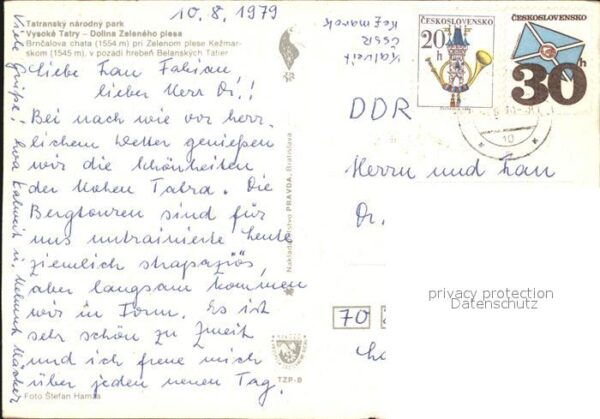 10.8.1979
Tatranský národný park
Vysoké Tatry – Dolina Zeleného plesa
Brnčalova chata (1554 m) pri Zelenom plese Kežmar-
skom (1545 m), v pozadí hrebeň Belanských Tatier
Liebe Frau Fabian,
lieber Herr Dr.!
Bei nach wie vor herr-
lichem Wetter genießen
wir die Schönheiten
der Hohen Tatra. Die
Bergtouren sind für
uns untrainierte Leute
ziemlich strapaziös,
aber langsam kommen
wir in Form. Es ist
sehr schön zu zweit
und ich freue mich
über jeden neuen Tag.
Viele Grüße! Eva Kalweit u. Helmut
Foto Štefan
Nakladateľstvo PRAVDA, Bratislava
TZP-B
Kalweit
ČSSR
Kežmarok
ČESKOSLOVENSKO
20
h
ČESKOSLOVENSKO
30h
10
DDR
Herrn und Frau
Dr.
70
privacy protection
Datenschutz